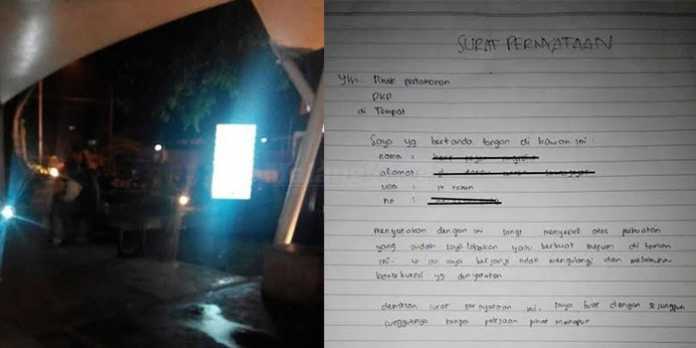 SURAT PERNYATAAN
Yth. Pihak pertamanan
DKP
di Tempat
Saya yg bertanda tangan di bawah ini :
nama :
alamat :
usia : tahun
no :
menyatakan dengan ini sangat menyesal atas perbuatan
yang sudah saya lakukan yaitu berbuat mesum di taman
ini. saya berjanji tidak mengulangi dan menerima
konsekuensi yg dinyatakan
demikian surat pernyataan ini. saya buat dengan sesungguh
sungguhnya tanpa paksaan pihak manapun